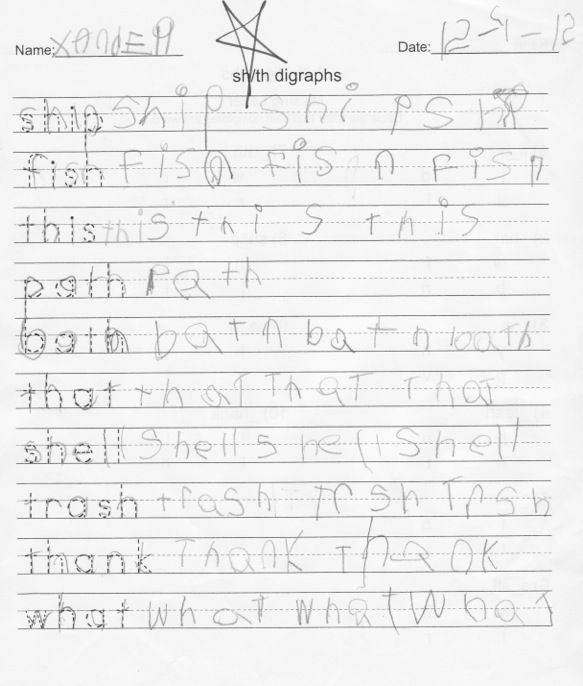 Name: XANDER
Date: 12-4-12
sh/th digraphs
ship ship ship ship
fish Fish Fish Fish
this this this this
path Path
bath bath bath bath
that that That That
shell Shell shell Shell
trash trash Trsh Trsh
thank Thank Thank
what what what What